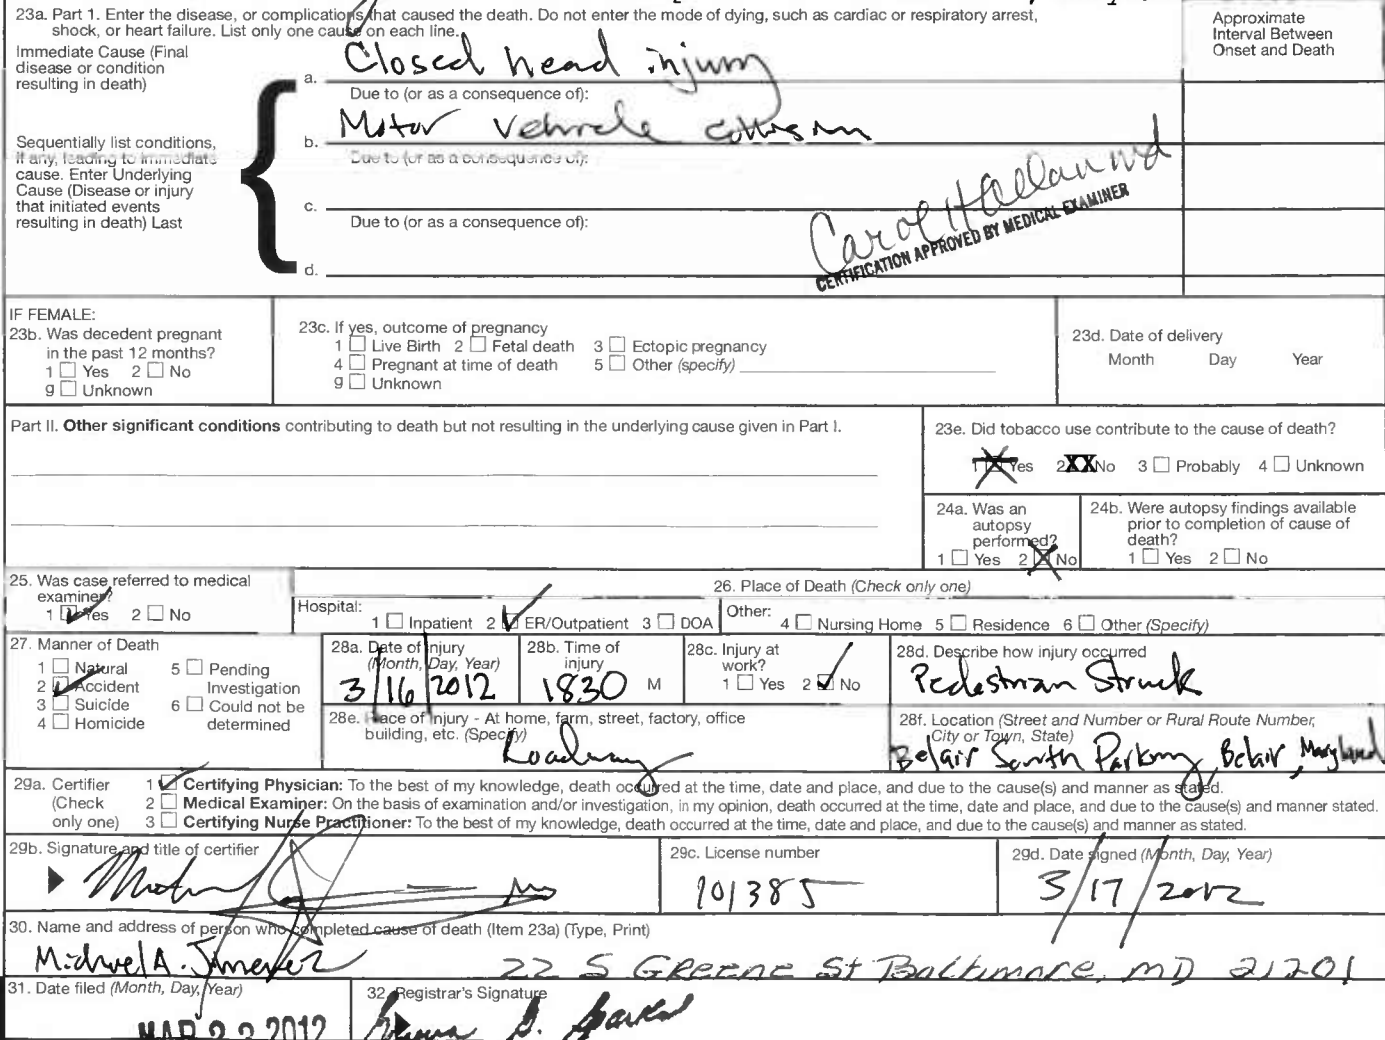 23a. Part 1. Enter the disease, or complications that caused the death. Do not enter the mode of dying, such as cardiac or respiratory arrest,
shock, or heart failure. List only one cause on each line.
Approximate
Interval Between
Onset and Death
Immediate Cause (Final
disease or condition
resulting in death)
a. Closed head injury
Due to (or as a consequence of):
Sequentially list conditions,
if any, leading to immediate
cause. Enter Underlying
Cause (Disease or injury
that initiated events
resulting in death) Last
b. Motor vehicle collision
Due to (or as a consequence of):
c.
Due to (or as a consequence of):
d.
Carol Hallan md
CERTIFICATION APPROVED BY MEDICAL EXAMINER
IF FEMALE:
23b. Was decedent pregnant
in the past 12 months?
1 Yes 2 No
9 Unknown
23c. If yes, outcome of pregnancy
1 Live Birth 2 Fetal death 3 Ectopic pregnancy
4 Pregnant at time of death 5 Other (specify)
9 Unknown
23d. Date of delivery
Month Day Year
Part II. Other significant conditions contributing to death but not resulting in the underlying cause given in Part I.
23e. Did tobacco use contribute to the cause of death?
1 Yes 2 XX No 3 Probably 4 Unknown
24a. Was an
autopsy
performed?
1 Yes 2 No
24b. Were autopsy findings available
prior to completion of cause of
death?
1 Yes 2 No
25. Was case referred to medical
examiner?
1 Yes 2 No
26. Place of Death (Check only one)
Hospital: 1 Inpatient 2 ER/Outpatient 3 DOA
Other: 4 Nursing Home 5 Residence 6 Other (Specify)
27. Manner of Death
1 Natural 5 Pending
2 Accident Investigation
3 Suicide 6 Could not be
4 Homicide determined
28a. Date of Injury
(Month, Day, Year)
3/16/2012
28b. Time of
injury
1830 M
28c. Injury at
work?
1 Yes 2 No
28d. Describe how injury occurred
Pedestrian Struck
28e. Place of Injury - At home, farm, street, factory, office
building, etc. (Specify)
Roadway
28f. Location (Street and Number or Rural Route Number,
City or Town, State)
Belair South Parkway, Belair, Maryland
29a. Certifier
(Check
only one)
1 Certifying Physician: To the best of my knowledge, death occurred at the time, date and place, and due to the cause(s) and manner as stated.
2 Medical Examiner: On the basis of examination and/or investigation, in my opinion, death occurred at the time, date and place, and due to the cause(s) and manner stated.
3 Certifying Nurse Practitioner: To the best of my knowledge, death occurred at the time, date and place, and due to the cause(s) and manner as stated.
29b. Signature and title of certifier
29c. License number
101385
29d. Date signed (Month, Day, Year)
3/17/2012
30. Name and address of person who completed cause of death (Item 23a) (Type, Print)
Michael A. Jimenez 22 S Greene St Baltimore, MD 21201
31. Date filed (Month, Day, Year)
MAR 23 2012
32. Registrar's Signature